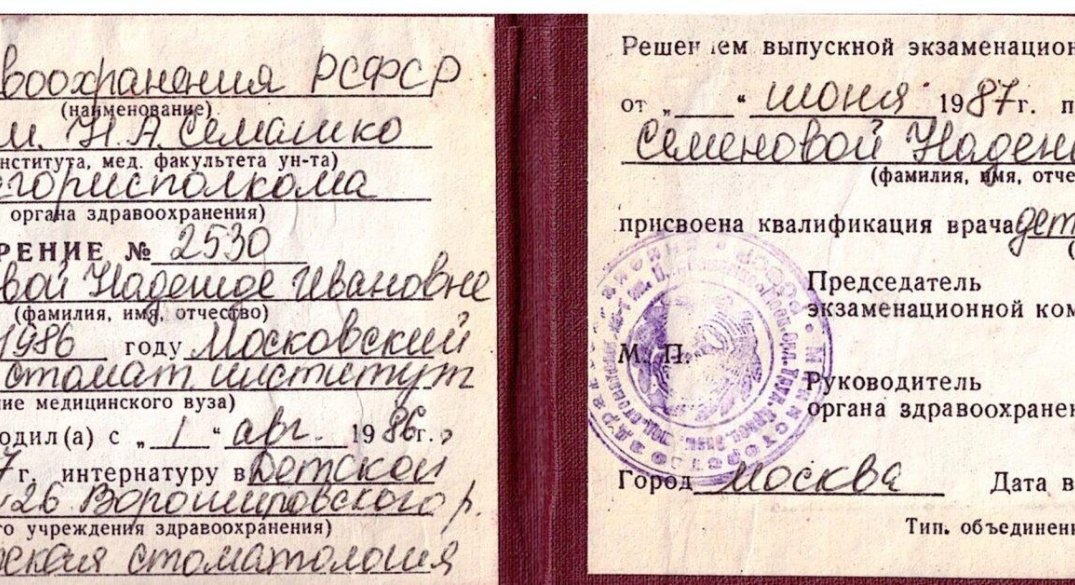 воохранения РСФСР
(наименование)
м. Н.А.Семашко
нститута, мед. факультета ун-та)
горисполкома
органа здравоохранения)
РЕНИЕ № 2530
вой Надежде Ивановне
(фамилия, имя, отчество)
1986 году Московский
стомат институт
ие медицинского вуза)
одил(а) с „ 1 “ авг. 1986г.,
7 г. интернатуру в Детской
26 Ворошиловского р.
го учреждения здравоохранения)
ская стоматология
Решением выпускной экзаменацион
от „ “ июня 1987г. п
Семеновой Надеж
(фамилия, имя, отче
присвоена квалификация врача дет
Председатель
экзаменационной ком
М. П.
Руководитель
органа здравоохранен
Город Москва Дата в
Тип. объединен